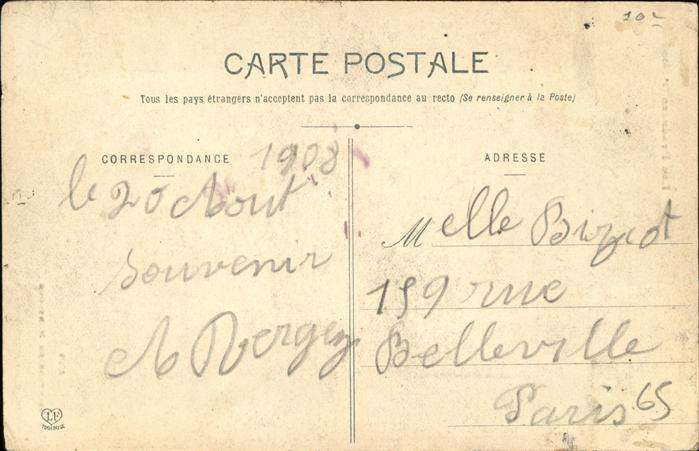 10
CARTE POSTALE
Tous les pays étrangers n'acceptent pas la correspondance au recto (Se renseigner à la Poste)
CORRESPONDANCE
1908
le 20 Aout
souvenir
ADRESSE
Melle
159 rue
Belleville
Paris
65
LF
TOULOUSE